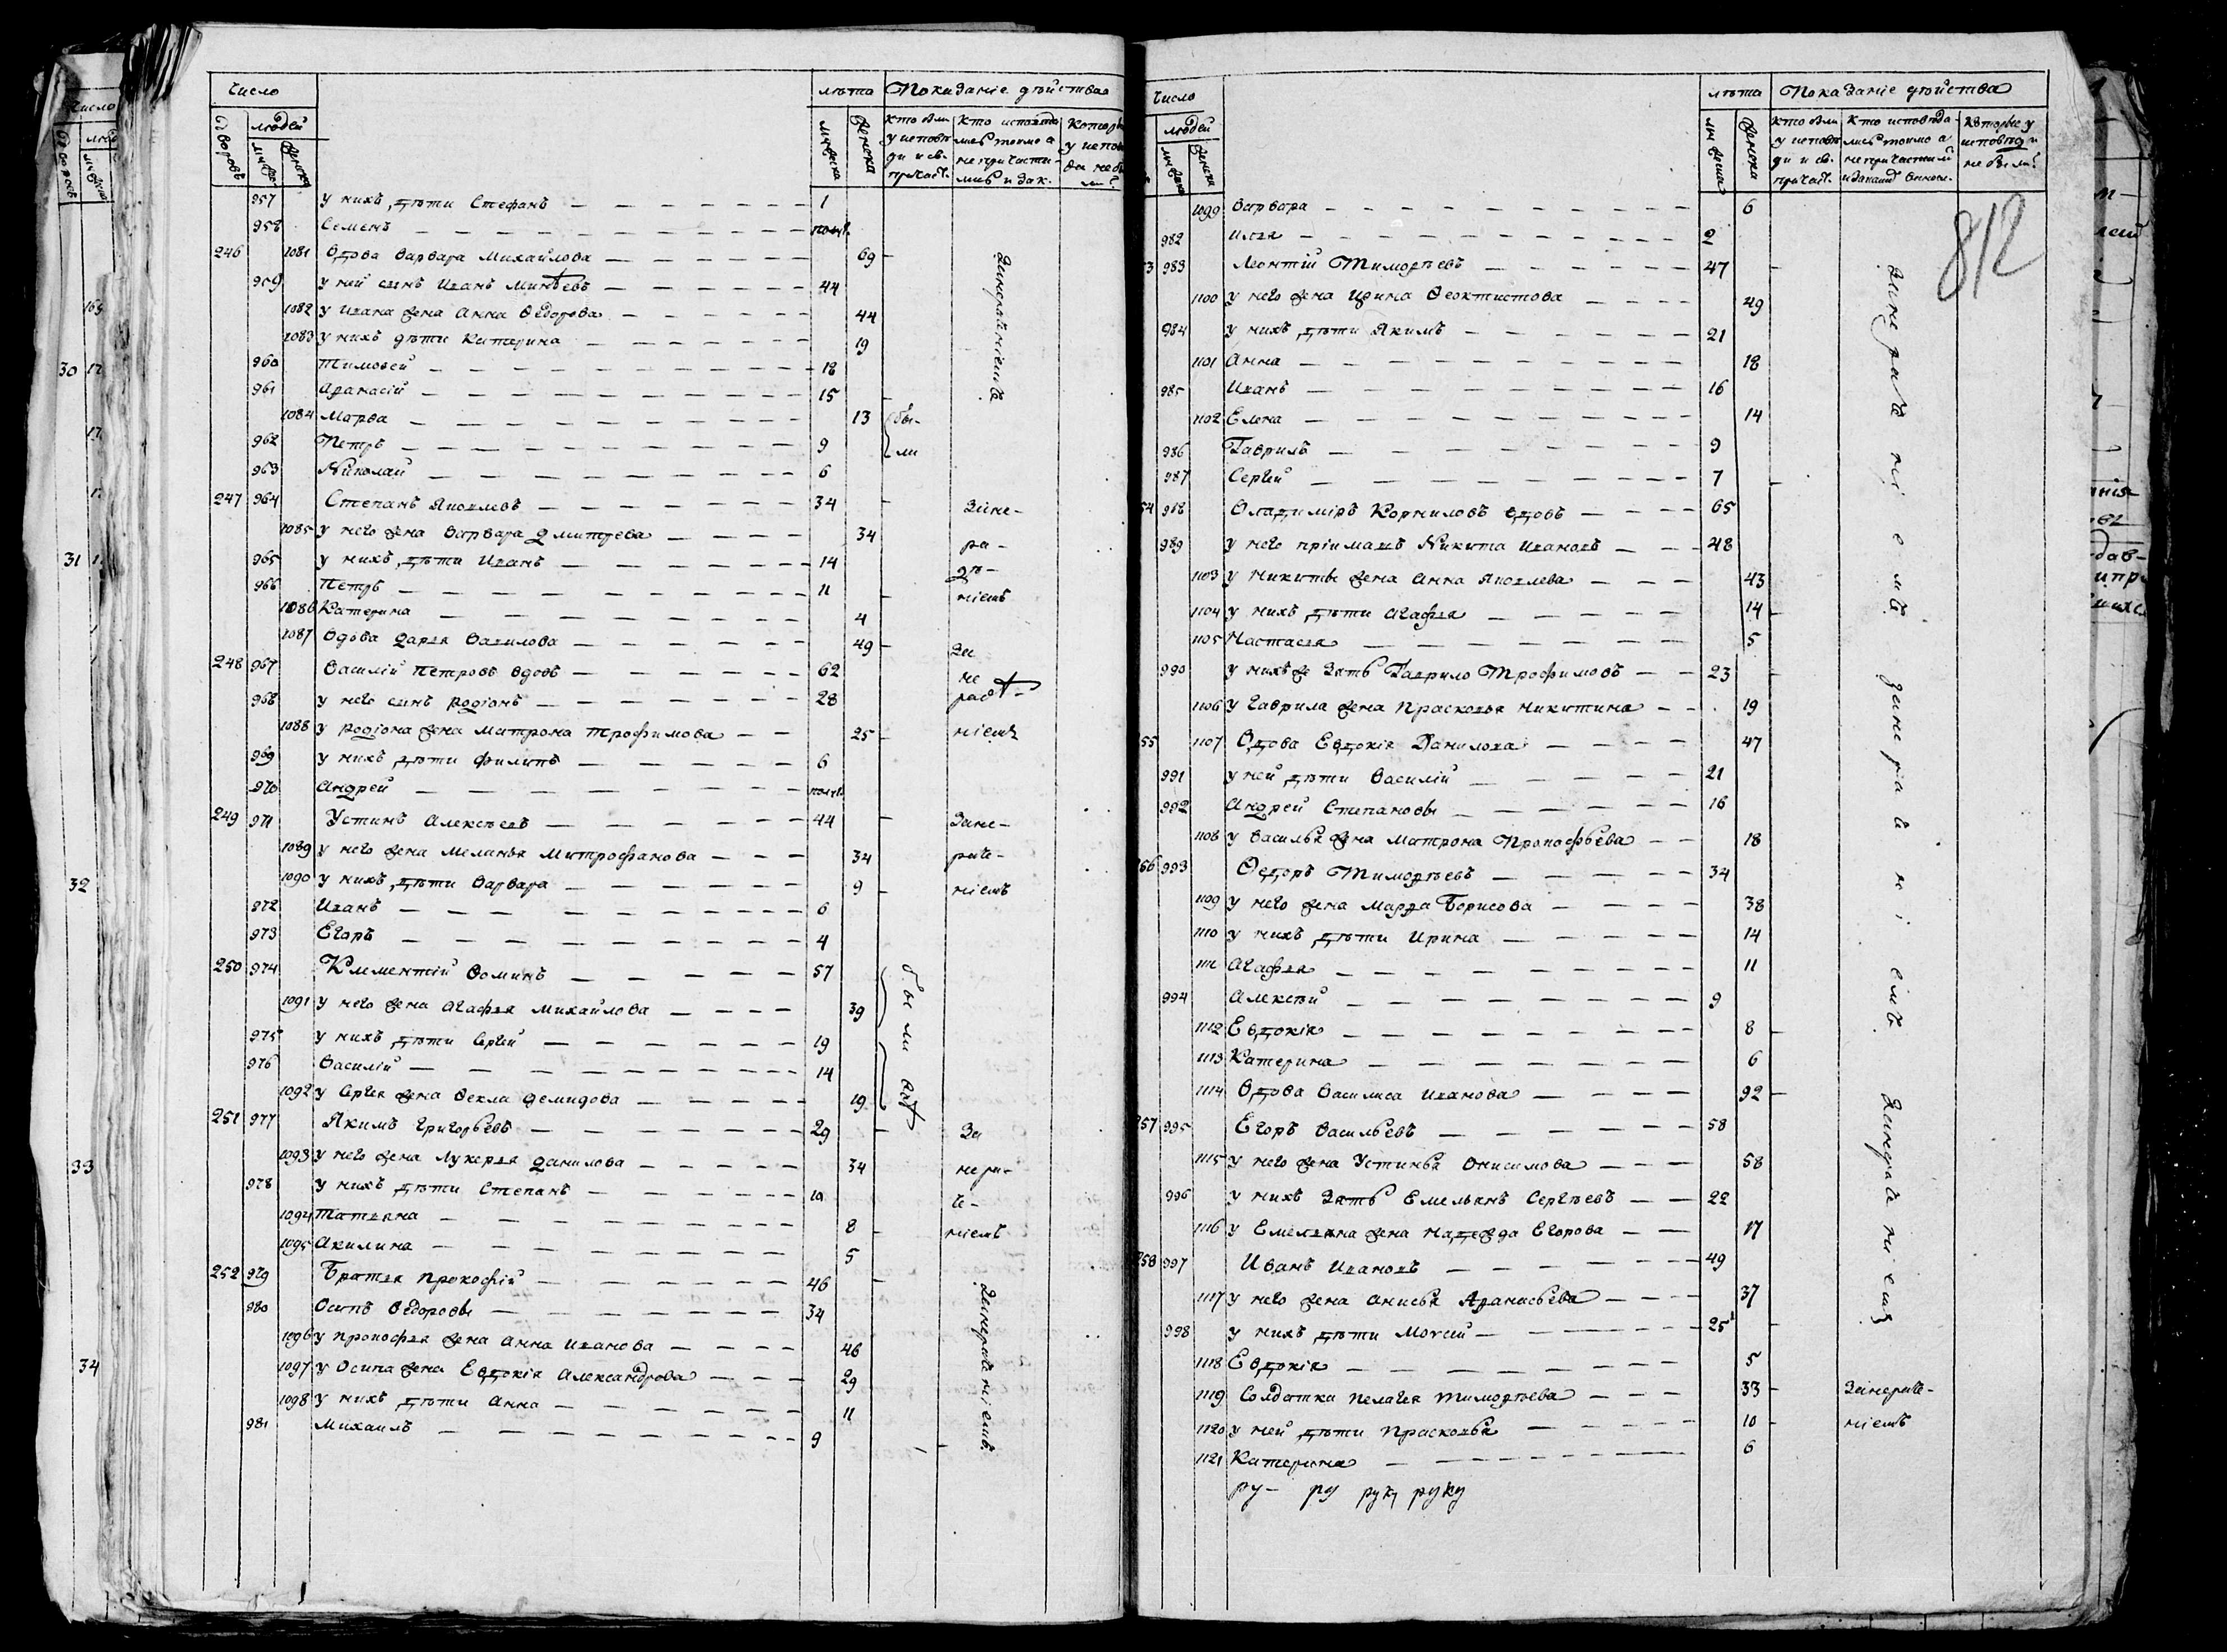 Число
лѣта Показаніе дѣйства
дворовъ людей
мужеска женска
957 у нихъ дѣти Стефанъ 1
958 Семенъ полуг.
246 1081 Вдова Варвара Михайлова 69
959 у ней сынъ Иванъ Минѣевъ 44
1082 у Ивана жена Анна Ѳедорова 44
1083 у нихъ дѣти Катерина 19
960 Тимоѳей 18
961 Аѳанасій 15
1084 Марѳа 13 бы-
962 Петръ 9 ли
963 Николай 6
занераденіемъ
247 964 Степанъ Яковлевъ 34 Зане-
1085 у него жена Варвара Дмитрева 34 ра-
965 у нихъ дѣти Иванъ 14 дѣ-
966 Петръ 11 ніемъ
1086 Катерина 4
1087 Вдова Дарья Вавилова 49 За
248 967 Василій Петровъ вдовъ 62 не
968 у него сынъ Родіонъ 28 рад
1088 у Родіона жена Матрона Трофимова 25 ніемъ
969 у нихъ дѣти Филипъ 6
970 Андрей полуг.
249 971 Устинъ Алексѣевъ 44 Зане-
1089 у него жена Меланья Митрофанова 34 раде-
1090 у нихъ дѣти Варвара 9 ніемъ
972 Иванъ 6
973 Егоръ 4
250 974 Климентій Ѳоминъ 57
1091 у него жена Агафья Михайлова 39
975 у нихъ дѣти Сергій 19
976 Василій 14
1092 у Сергея жена Ѳекла Демидова 19
были
251 977 Якимъ Григорьевъ 29 За
1093 у него жена Лукерья Данилова 34 нера-
978 у нихъ дѣти Степанъ 10 де-
1094 Татьяна 8 ніемъ
1095 Акилина 5
252 979 Братья Прокофій 46
980 Осипъ Ѳедоровы 34
1096 у Прокофья жена Анна Иванова 46
1097 у Осипа жена Евдокія Александрова 29
1098 у нихъ дѣти Анна 11
981 Михаилъ 9
занераденіемъ
Число
лѣта Показаніе дѣйства
людей
мужеска женска
812
1099 Варвара 6
982 Илья 2
983 Леонтій Тимоѳѣевъ 47
1100 у него жена Ирина Ѳеоктистова 49
984 у нихъ дѣти Якимъ 21
1101 Анна 18
985 Иванъ 16
1102 Елена 14
986 Гаврилъ 9
987 Сергій 7
занераденіемъ
54 988 Владиміръ Корниловъ вдовъ 65
989 у него пріимашъ Никита Ивановъ 48
1103 у Никиты жена Анна Яковлева 43
1104 у нихъ дѣти Агафья 14
1105 Настасья 5
990 у нихъ же зять Гаврило Трофимовъ 23
1106 у Гаврила жена Прасковья Никитина 19
55 1107 Вдова Евдокія Данилова 47
991 у ней дѣти Василій 21
992 Андрей Степановы 16
1108 у Василья жена Матрона Прокофьева 18
993 Ѳедоръ Тимоѳѣевъ 34
1109 у него жена Марѳа Борисова 38
1110 у нихъ дѣти Ирина 14
1111 Агафья 11
994 Алексѣй 9
1112 Евдокія 8
1113 Катерина 6
занераденіемъ
1114 Вдова Василиса Иванова 92
257 995 Егоръ Васильевъ 58
1115 у него жена Устинья Онисимова 58
996 у нихъ зять Емельянъ Сергѣевъ 22
1116 у Емельяна жена Надежда Егорова 17
258 997 Иванъ Ивановъ 49
1117 у него жена Анисья Аѳанасьева 37
998 у нихъ дѣти Моѵсей 25
1118 Евдокія 5
занераденіемъ
1119 Солдатка Пелагея Тимоѳѣева 33 Занераде-
1120 у ней дѣти Прасковья 10 ніемъ
1121 Катерина 6
ру- ру руку руку